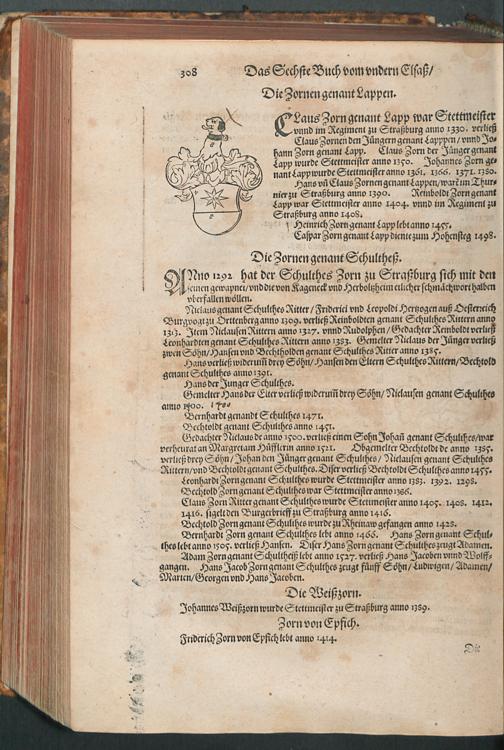 308 Das Sechste Buch vom vndern Elsaß/
Die Zornen genant Lappen.
CLaus Zorn genant Lapp war Stettmeister
vnnd im Regiment zu Straßburg anno 1330. verließ
Claus Zornen den Jüngern genant Lapppen/ vnnd Jo-
hann Zorn genant Lapp. Claus Zorn der Jünger genant
Lapp wurde Stettmeister anno 1350. Johannes Zorn ge-
nant Lapp wurde Stettmeister anno 1361. 1366. 1371. 1380.
Hans vñ Claus Zornen genant Lappen/ warẽ im Thur-
nier zu Straßburg anno 1390. Reinboldt Zorn genant
Lapp war Stettmeister anno 1404. vnnd im Regiment zu
Straßburg anno 1408.
Heinrich Zorn genant Lapp lebt anno 1455.
Caspar Zorn genant Lapp diente zum Hohensteg 1498.
Die Zornen genant Schultheß.
ANno 1292 hat der Schulthes Zorn zu Straßburg sich mit den
seinen gewapnet/ vnd die von Kageneck vnd Herboltzheim etlicher schmächwort halben
vberfallen wöllen.
Niclaus genant Schulthes Ritter/ Friderici vnd Leopoldi Hertzogen auß Oesterreich
Burgvogt zu Ortenberg anno 1309. verließ Reinboldten genant Schulthes Rittern anno
1313. Item Niclausen Rittern anno 1327. vnnd Rudolphen/ Gedachter Renboldt verließ
Leonhardten genant Schulthes Rittern anno 1383. Gemelter Niclaus der Jünger verließ
zwen Söhn/ Hansen vnd Bechtholden genant Schulthes Ritter anno 1385.
Hans verließ widerum̃ drey Söhn/ Hansen den Eltern Schulthes Rittern/ Bechtold
genant Schulthes anno 1391.
Hans der Junger Schulthes.
Gemelter Hans der Elter verließ widerum̃ drey Söhn/ Niclausen genant Schulthes
anno 1400. 1400
Bernhardt genandt Schulthes 1471.
Bechtoldt genant Schulthes anno 1451.
Gedachter Niclaus de anno 1500. verließ einen Sohn Johañ genant Schulthes/ war
verheurat an Margretam Hüfflerin anno 1521. Obgemelter Bechtoldt de anno 1385.
verließ drey Söhn/ Johan den Jünger genant Schulthes/ Niclausen genant Schulthes
Rittern/ vnd Bechtoldt genant Schulthes. Diser verließ Bechtoldt Schulthes anno 1455.
Leonhardt Zorn genant Schulthes wurde Stettmeister anno 1383. 1392. 1298.
Bechtold Zorn genant Schulthes war Stettmeister anno 1386.
Claus Zorn Ritter genant Schulthes wurde Stettmeister anno 1405. 1408. 1412.
1416. sigelt den Burgebrieff zu Straßburg anno 1416.
Bechtold Zorn genant Schulthes wurde zu Rheinaw gefangen anno 1428.
Bernhardt Zorn genant Schulthes lebt anno 1466. Hans Zorn genant Schul-
thes lebt anno 1505. verließ Hansen. Diser Hans Zorn genant Schulthes zeugt Adamen.
Adam Zorn genant Schultheß lebt anno 1527. verließ Hans Jacoben vnnd Wolff-
gangen. Hans Jacob Zorn genant Schulthes zeugt fünff Söhn/ Ludwigen/ Adamen/
Marten/ Georgen vnd Hans Jacoben.
Die Weißzorn.
Johannes Weißzorn wurde Stettmeister zu Straßburg anno 1389.
Zorn von Epfich.
Friderich Zorn von Epfich lebt anno 1414.
Die